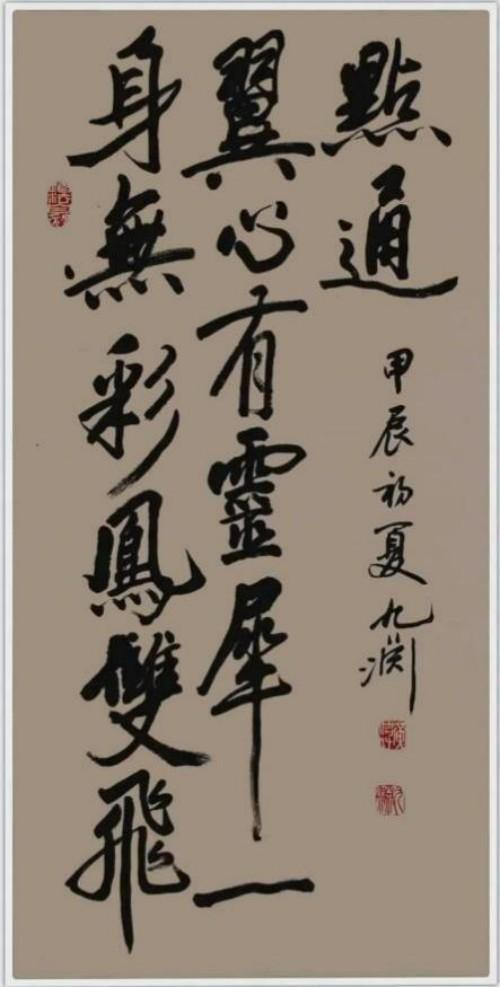 身無彩鳳雙飛
翼心有靈犀一
點通
甲辰初夏九渊